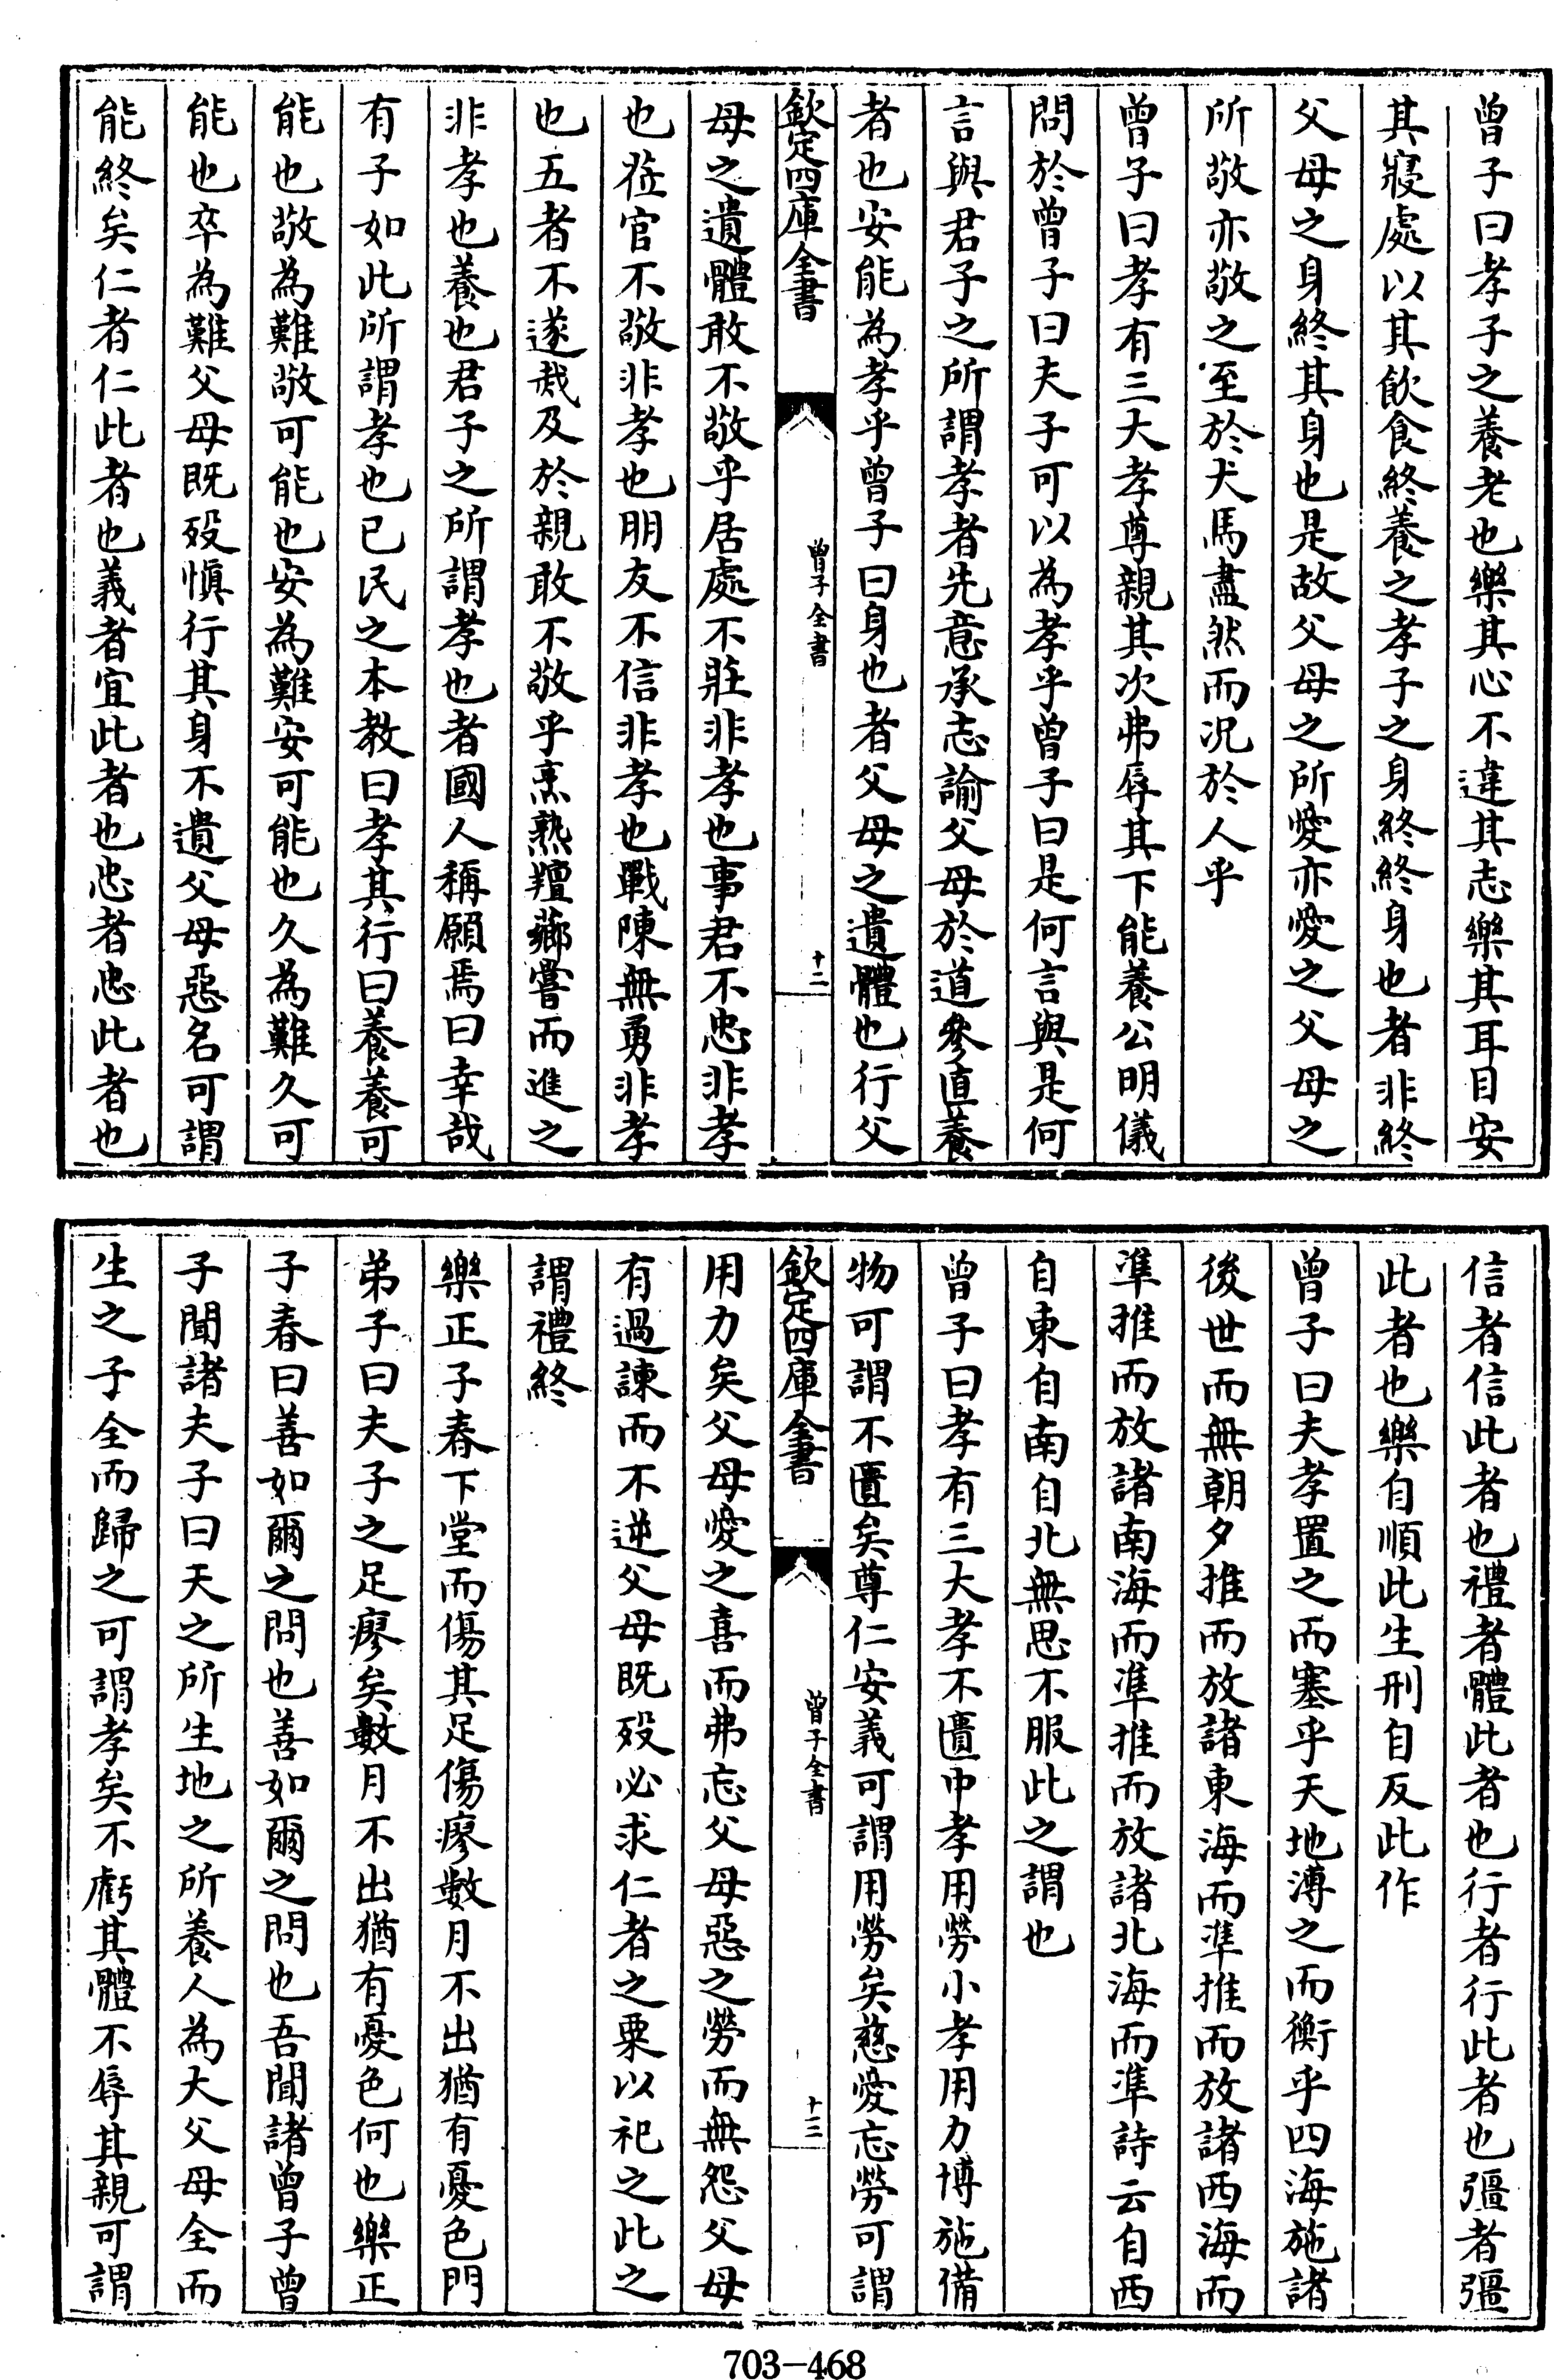 曾子曰孝子之養老也樂其心不違其志樂其耳目安
其寢處以其飲食終養之孝子之身終終身也者非終
父母之身終其身也是故父母之所愛亦愛之父母之
所敬亦敬之至於犬馬盡然而况於人乎
曾子曰孝有三大孝尊親其次弗辱其下能養公明儀
問於曾子曰夫子可以為孝乎曾子曰是何言與是何
言與君子之所謂孝者先意承志諭父母於道參直養
者也安能為孝乎曾子曰身也者父母之遺體也行父
欽定四庫全書
曾子全書
十二
母之遺體敢不敬乎居處不莊非孝也事君不忠非孝
也蒞官不敬非孝也朋友不信非孝也戰陳無勇非孝
也五者不遂烖及於親敢不敬乎烹熟羶薌嘗而進之
非孝也養也君子之所謂孝也者國人稱願焉曰幸哉
有子如此所謂孝也已民之本教曰孝其行曰養養可
能也敬為難敬可能也安為難安可能也久為難久可
能也卒為難父母既歿慎行其身不遺父母惡名可謂
能終矣仁者仁此者也義者宜此者也忠者忠此者也
信者信此者也禮者體此者也行者行此者也彊者彊
此者也樂自順此生刑自反此作
曾子曰夫孝置之而塞乎天地溥之而衡乎四海施諸
後世而無朝夕推而放諸東海而準推而放諸西海而
準推而放諸南海而準推而放諸北海而準詩云自西
自東自南自北無思不服此之謂也
曾子曰孝有三大孝不匱中孝用勞小孝用力博施備
物可謂不匱矣尊仁安義可謂用勞矣慈愛忘勞可謂
欽定四庫全書
曾子全書
十三
用力矣父母愛之喜而弗忘父母惡之勞而無怨父母
有過諫而不逆父母既歿必求仁者之粟以祀之此之
謂禮終
樂正子春下堂而傷其足傷瘳數月不出猶有憂色門
弟子曰夫子之足瘳矣數月不出猶有憂色何也樂正
子春曰善如爾之問也善如爾之問也吾聞諸曾子曾
子聞諸夫子曰天之所生地之所養人為大父母全而
生之子全而歸之可謂孝矣不虧其體不辱其親可謂
703-468